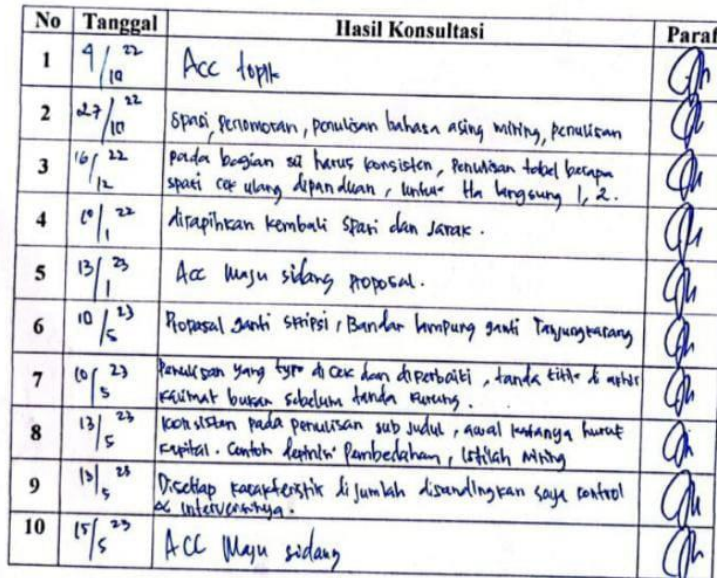 No Tanggal Hasil Konsultasi Paraf
1 4/10 22 Acc topik
2 27/10 22 spasi, penomoran, penulisan bahasa asing miring, penulisan
3 16/12 22 pada bagian isi harus konsisten, penulisan tabel berapa
spasi cek ulang dipanduan, untuk Ha langsung 1, 2.
4 10/1 22 dirapihkan kembali spasi dan jarak.
5 13/1 23 Acc Maju sidang proposal.
6 10/5 23 Proposal ganti skripsi, Bandar lampung ganti Tanjungkarang
7 10/5 23 Penulisan yang typo di cek dan diperbaiki, tanda titik di akhir
kalimat bukan sebelum tanda kurung.
8 13/5 23 konsisten pada penulisan sub judul, awal katanya huruf
kapital. Contoh Pembedahan, istilah miring
9 13/5 23 Disetiap karakteristik di jumlah disandingkan saja control
& intervensinya.
10 15/5 23 ACC Maju sidang